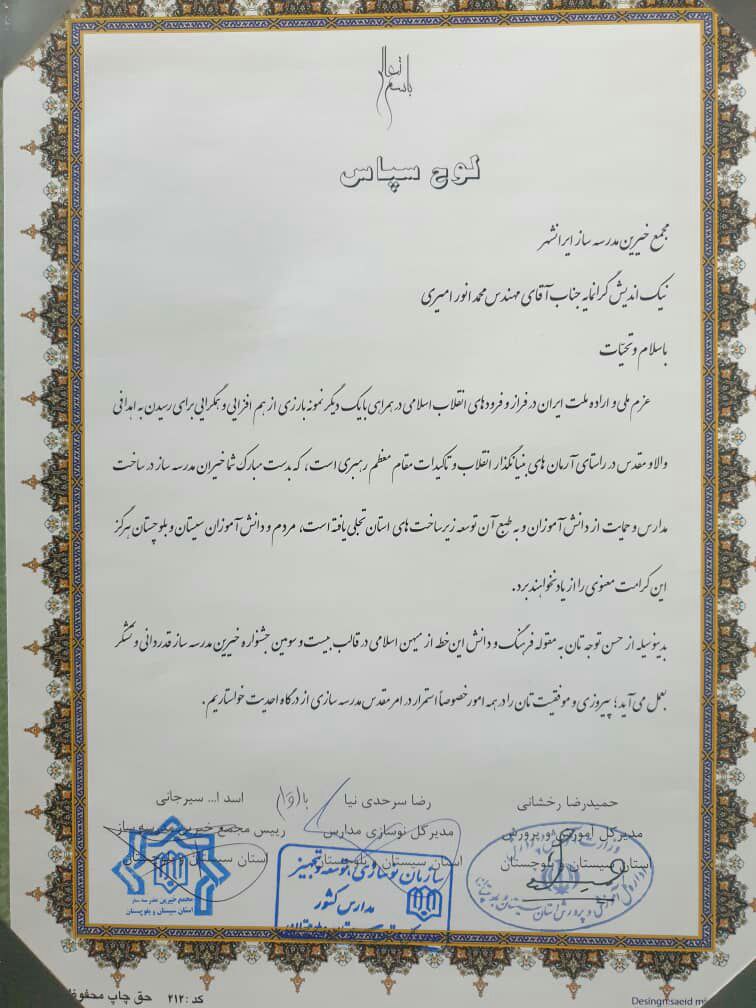 باسمه تعالی
لوح سپاس
مجمع خیرین مدرسه ساز ایرانشهر
نیک اندیش گرانمایه جناب آقای مهندس محمد انور امیری
باسلام و تحیّات
عزم ملی و اراده ملت ایران در فراز و فرودهای انقلاب اسلامی در همراهی با یک دیگر نمونه بارزی از هم افزایی و همگرایی برای رسیدن به اهدافی
والا و مقدس در راستای آرمان های بنیانگذار انقلاب و تاکیدات مقام معظم رهبری است، که بدست مبارک شما خیران مدرسه ساز در ساخت
مدارس و حمایت از دانش آموزان و به طبع آن توسعه زیرساخت های استان تجلی یافته است، مردم و دانش آموزان سیستان و بلوچستان هرگز
این کرامت معنوی را از یاد نخواهند برد.
بدینوسیله از حسن توجه تان به مقوله فرهنگ و دانش این خطه از میهن اسلامی در قالب بیست و سومین جشنواره خیرین مدرسه ساز قدردانی و تشکر
بعمل می آید؛ پیروزی و موفقیت تان را در همه امور خصوصاً استمرار در امر مقدس مدرسه سازی از درگاه احدیت خواستاریم.
حمیدرضا رخشانی
مدیرکل آموزش و پرورش
استان سیستان و بلوچستان
رضا سرحدی نیا
مدیرکل نوسازی مدارس
استان سیستان و بلوچستان
اسد ا... سیرجانی
رییس مجمع خیرین مدرسه ساز
استان سیستان و بلوچستان
سازمان نوسازی، توسعه و تجهیز
مدارس کشور
مجمع خیرین مدرسه ساز
استان سیستان و بلوچستان
کد : ۲۱۲ حق چاپ محفوظ
Desingn:saeid